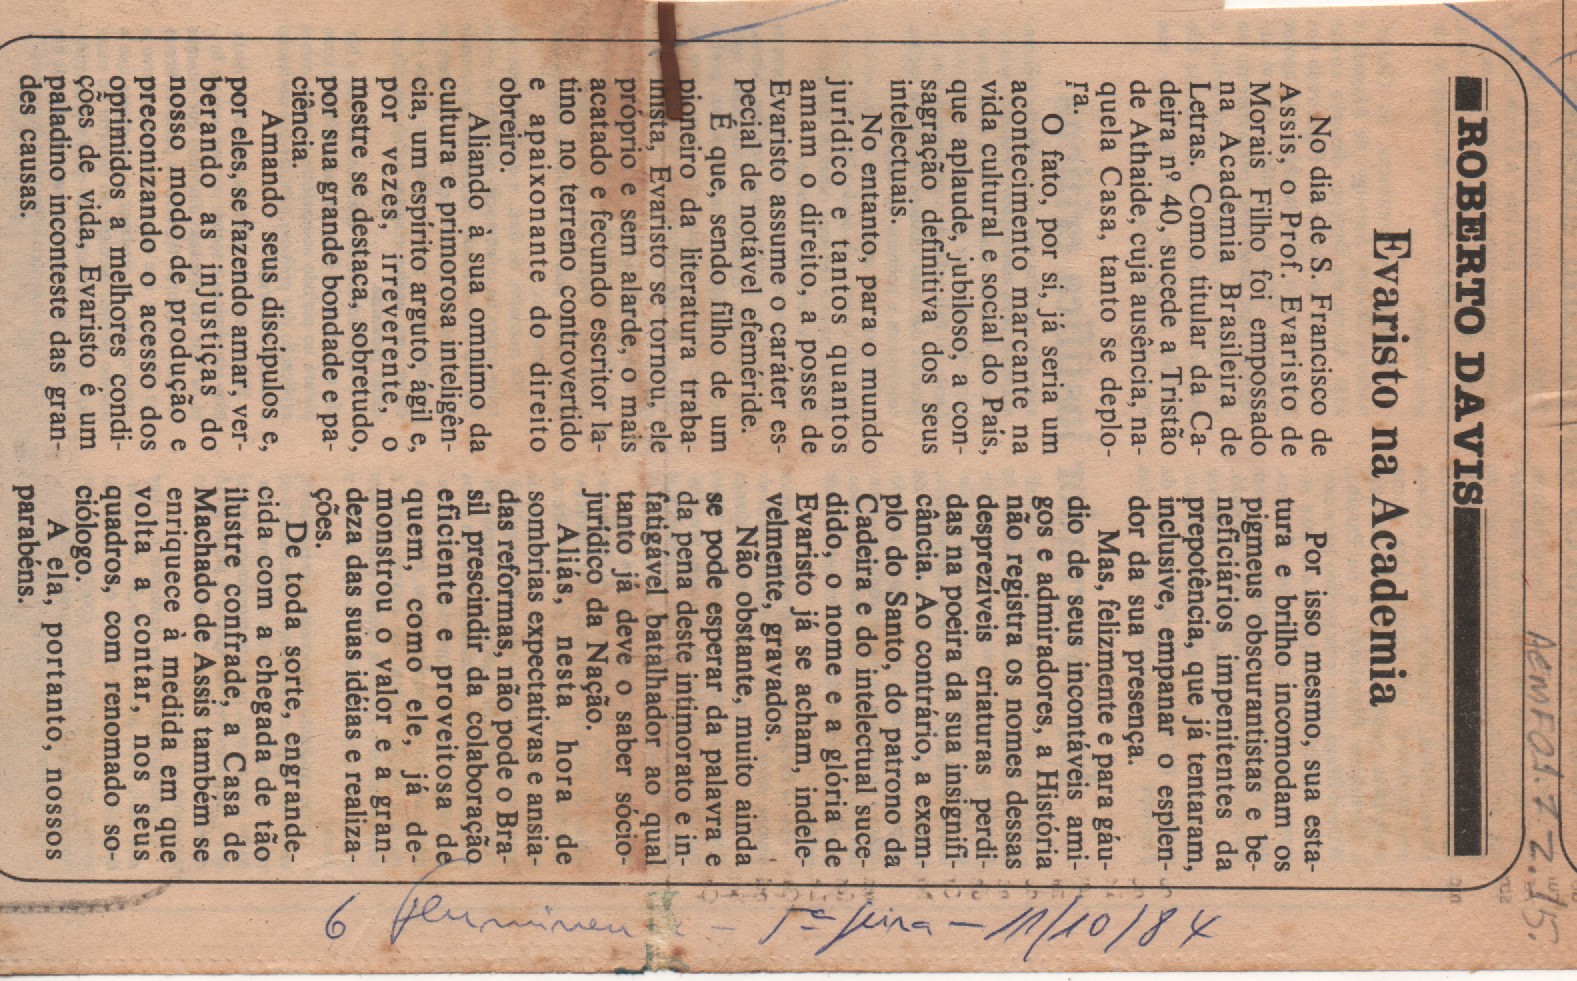 ROBERTO DAVIS
Evaristo na Academia
No dia de S. Francisco de
Assis, o Prof. Evaristo de
Morais Filho foi empossado
na Academia Brasileira de
Letras. Como titular da Ca-
deira nº 40, sucede a Tristão
de Athaide, cuja ausência, na-
quela Casa, tanto se deplo-
ra.
O fato, por si, já seria um
acontecimento marcante na
vida cultural e social do País,
que aplaude, jubiloso, a con-
sagração definitiva dos seus
intelectuais.
No entanto, para o mundo
jurídico e tantos quantos
amam o direito, a posse de
Evaristo assume o caráter es-
pecial de notável efeméride.
É que, sendo filho de um
pioneiro da literatura traba-
lhista, Evaristo se tornou, ele
próprio e sem alarde, o mais
acatado e fecundo escritor la-
tino no terreno controvertido
e apaixonante do direito
obreiro.
Aliando à sua omnímo da
cultura e primorosa inteligên-
cia, um espírito arguto, ágil e,
por vezes, irreverente, o
mestre se destaca, sobretudo,
por sua grande bondade e pa-
ciência.
Amando seus discípulos e,
por eles, se fazendo amar, ver-
berando as injustiças do
nosso modo de produção e
preconizando o acesso dos
oprimidos a melhores condi-
ções de vida, Evaristo é um
paladino inconteste das gran-
des causas.
Por isso mesmo, sua esta-
tura e brilho incomodam os
pigmeus obscurantistas e be-
neficiários impenitentes da
prepotência, que já tentaram,
inclusive, empanar o esplen-
dor da sua presença.
Mas, felizmente e para gáu-
dio de seus incontáveis ami-
gos e admiradores, a História
não registra os nomes dessas
desprezíveis criaturas perdi-
das na poeira da sua insignifi-
cância. Ao contrário, a exem-
plo do Santo, do patrono da
Cadeira e do intelectual suce-
dido, o nome e a glória de
Evaristo já se acham, indele-
velmente, gravados.
Não obstante, muito ainda
se pode esperar da palavra e
da pena deste intimorato e in-
fatigável batalhador ao qual
tanto já deve o saber sócio-
jurídico da Nação.
Aliás, nesta hora de
sombrias expectativas e ansia-
das reformas, não pode o Bra-
sil prescindir da colaboração
eficiente e proveitosa de
quem, como ele, já de-
monstrou o valor e a gran-
deza das suas idéias e realiza-
ções.
De toda sorte, engrande-
cida com a chegada de tão
ilustre confrade, a Casa de
Machado de Assis também se
enriquece à medida em que
volta a contar, nos seus
quadros, com renomado so-
ciólogo.
A ela, portanto, nossos
parabéns.
O Fluminense - 5ª feira - 11/10/84